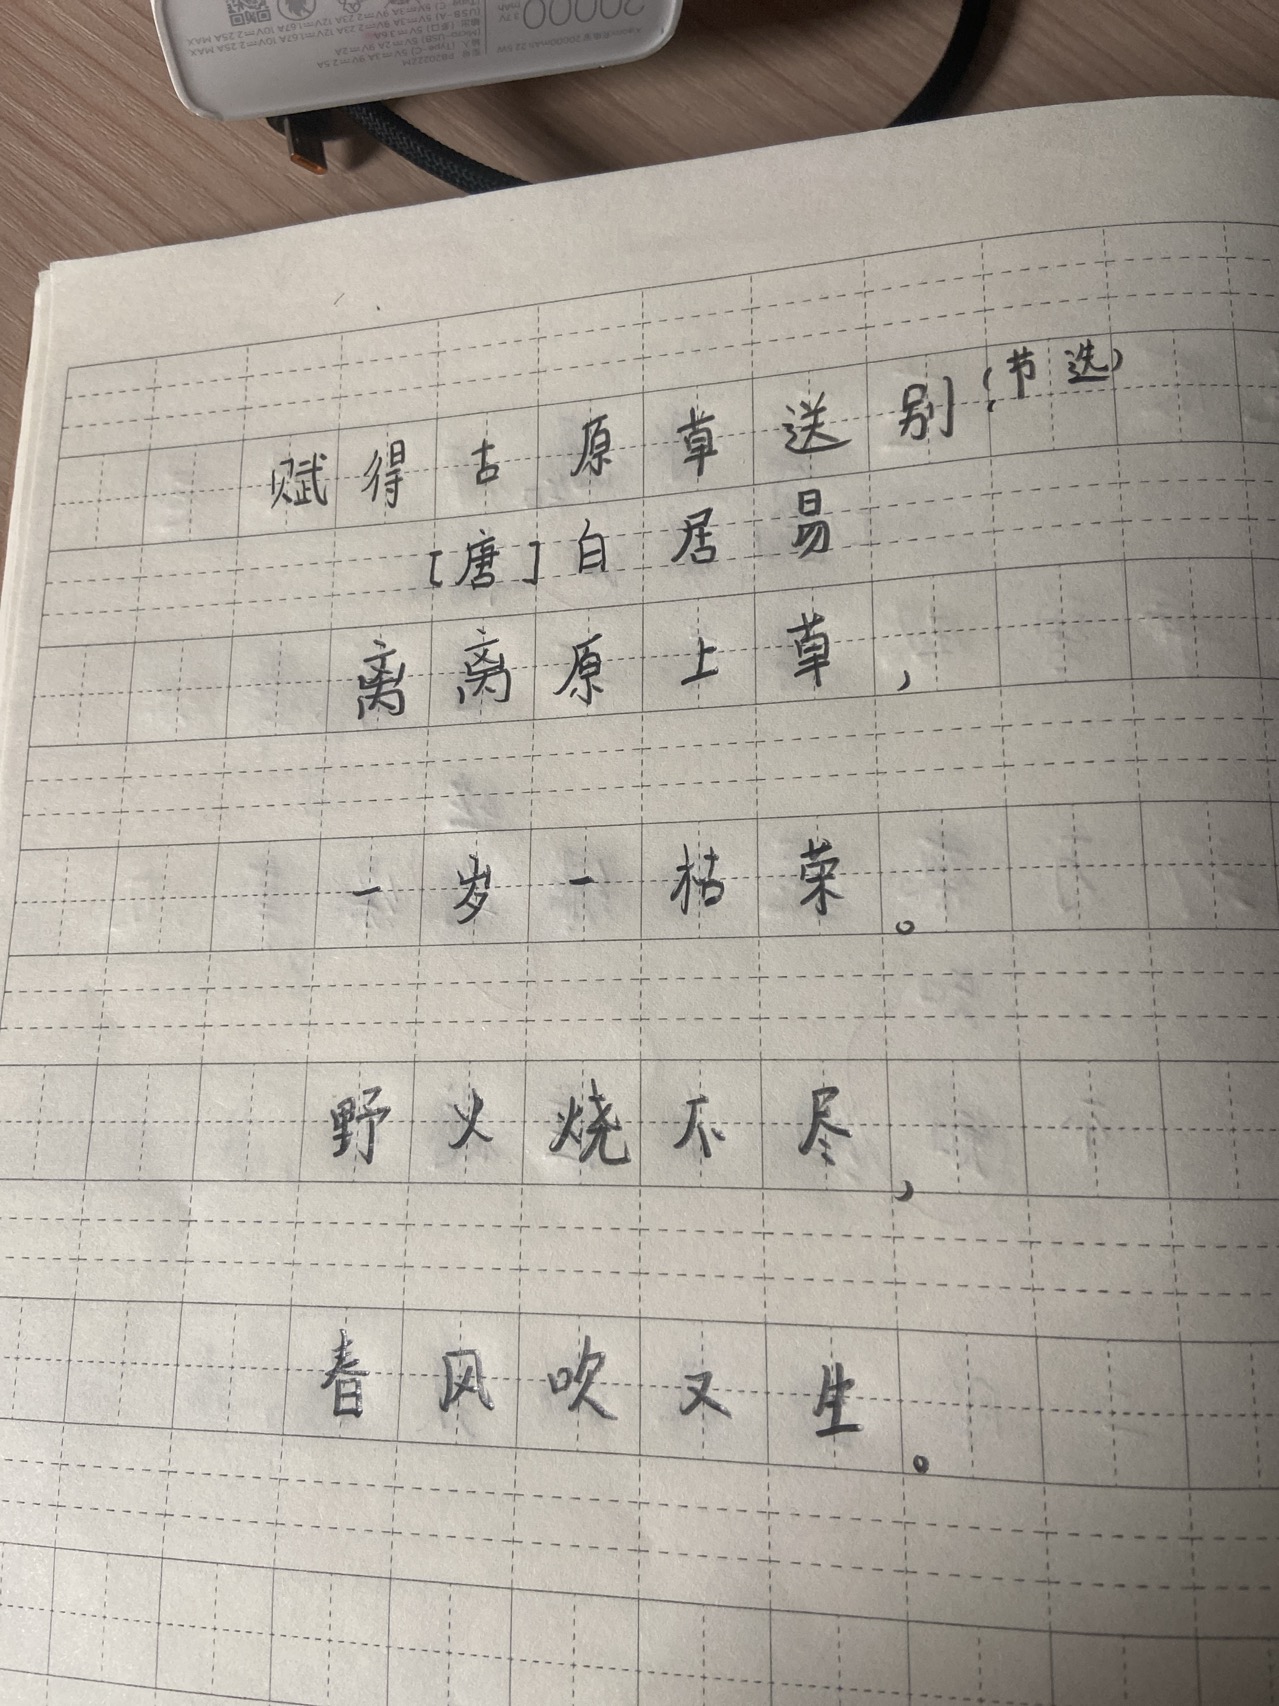 20000
mAh
3.7V
赋得古原草送别(节选)
[唐]白居易
离离原上草，
一岁一枯荣。
野火烧不尽，
春风吹又生。